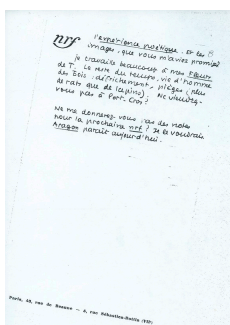 nrf
l'expérience poétique. Et les 8
images, que vous m'aviez promises
je travaille beaucoup à mes Fleurs
de T. Le reste du temps, vie d'homme
des Bois : défrichement, pièges (plus
de rats que de lapins). Ne viendrez-
vous pas à Port-Cros ?
Ne me donnerez-vous pas des notes
pour la prochaine nrf ? Je le voudrais
Aragon paraît aujourd'hui.
Paris, 43, rue de Beaune — 5, rue Sébastien-Bottin (VIIe)